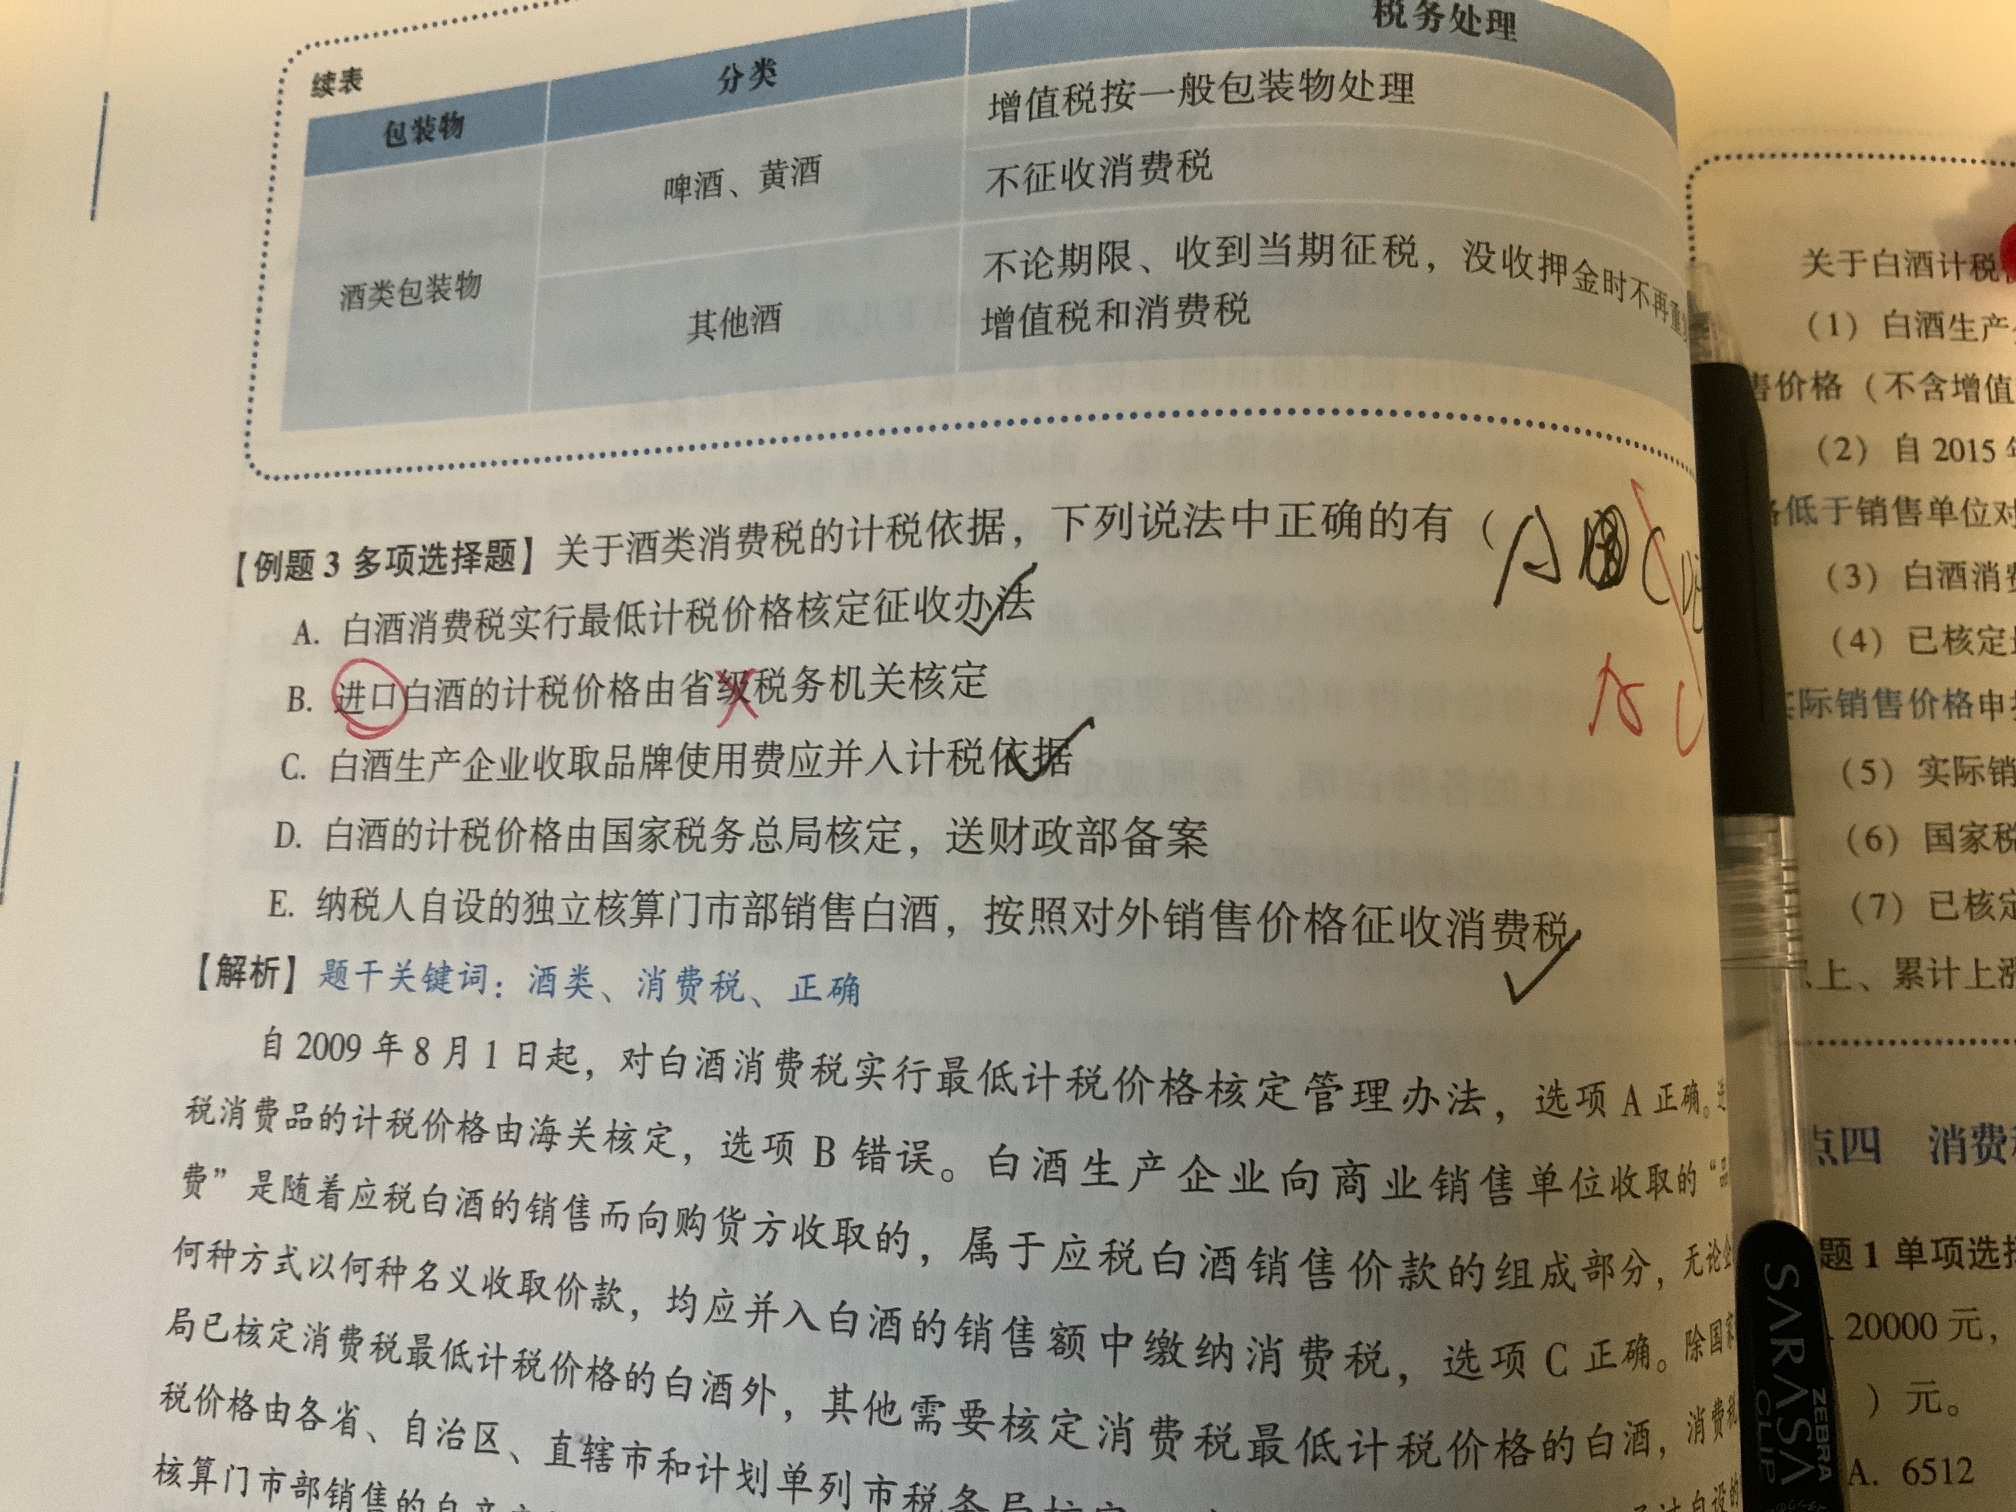 续表
包装物 分类 税务处理
酒类包装物 啤酒、黄酒 增值税按一般包装物处理
不征收消费税
其他酒 不论期限、收到当期征税，没收押金时不再
增值税和消费税
【例题 3 多项选择题】关于酒类消费税的计税依据，下列说法中正确的有（
A
C
A. 白酒消费税实行最低计税价格核定征收办法
B. 进口白酒的计税价格由省级税务机关核定
A C
C. 白酒生产企业收取品牌使用费应并入计税依据
D. 白酒的计税价格由国家税务总局核定，送财政部备案
E. 纳税人自设的独立核算门市部销售白酒，按照对外销售价格征收消费税
【解析】题干关键词：酒类、消费税、正确
自 2009 年 8 月 1 日起，对白酒消费税实行最低计税价格核定管理办法，选项 A 正确。
税消费品的计税价格由海关核定，选项 B 错误。白酒生产企业向商业销售单位收取的“
费”是随着应税白酒的销售而向购货方收取的，属于应税白酒销售价款的组成部分，无论
何种方式以何种名义收取价款，均应并入白酒的销售额中缴纳消费税，选项 C 正确。除国
局已核定消费税最低计税价格的白酒外，其他需要核定消费税最低计税价格的白酒，消费
税价格由各省、自治区、直辖市和计划单列市税务局核定
核算门市部销售的
关于白酒计税
（1）白酒生产
售价格（不含增值
（2）自 2015
低于销售单位对
（3）白酒消
（4）已核定
实际销售价格申
（5）实际销
（6）国家税
（7）已核定
上、累计上涨
点四 消费
题 1 单项选择
20000 元，
）元。
A. 6512
SARASA
CLIP
ZEBRA